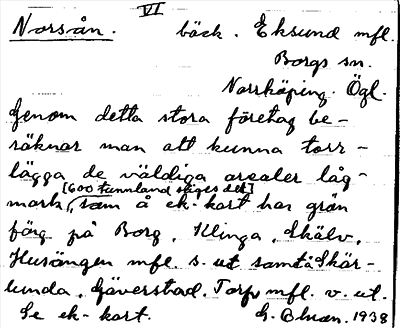 VI
Norsån. bäck. Eksund mfl.
Borgs sn.
Norrköping. Ögl.
Genom detta stora företag be-
räknar man att kunna torr-
lägga de väldiga arealer låg-
[600 tunnland säges det]
mark, som å ek. kart har grön
färg på Borg, Klinga, Skälv,
Husängen mfl. s. ut samt å Skär-
lunda, Gäverstad, Torp mfl. v. ut.
Se ek-kart. G. 1938